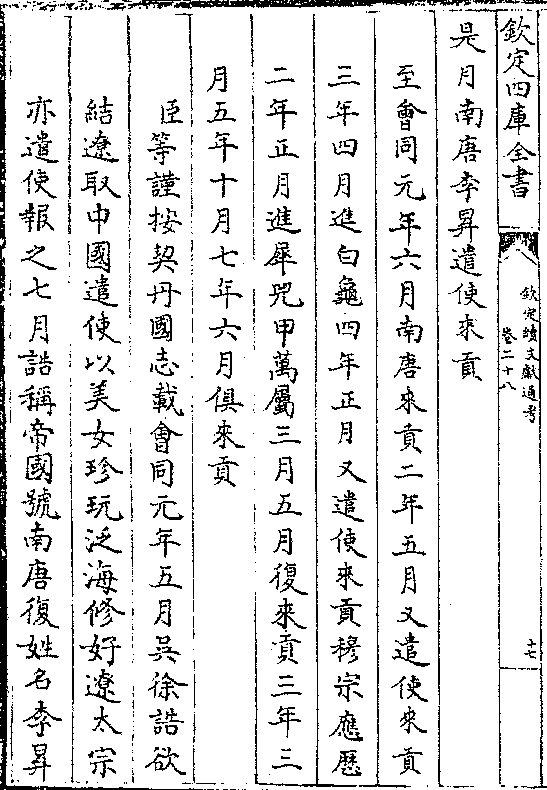 欽定四庫全書
欽定續文獻通考
卷二十八
十七
是月南唐李昇遣使來貢
至會同元年六月南唐來貢二年五月又遣使來貢
三年四月進白龜四年正月又遣使來貢穆宗應歷
二年正月進犀兕甲萬屬三月五月復來貢三年三
月五年十月七年六月俱來貢
臣等謹按契丹國志載會同元年五月吳徐誥欲
結遼取中國遣使以美女珍玩泛海修好遼太宗
亦遣使報之七月誥稱帝國號南唐復姓名李昇